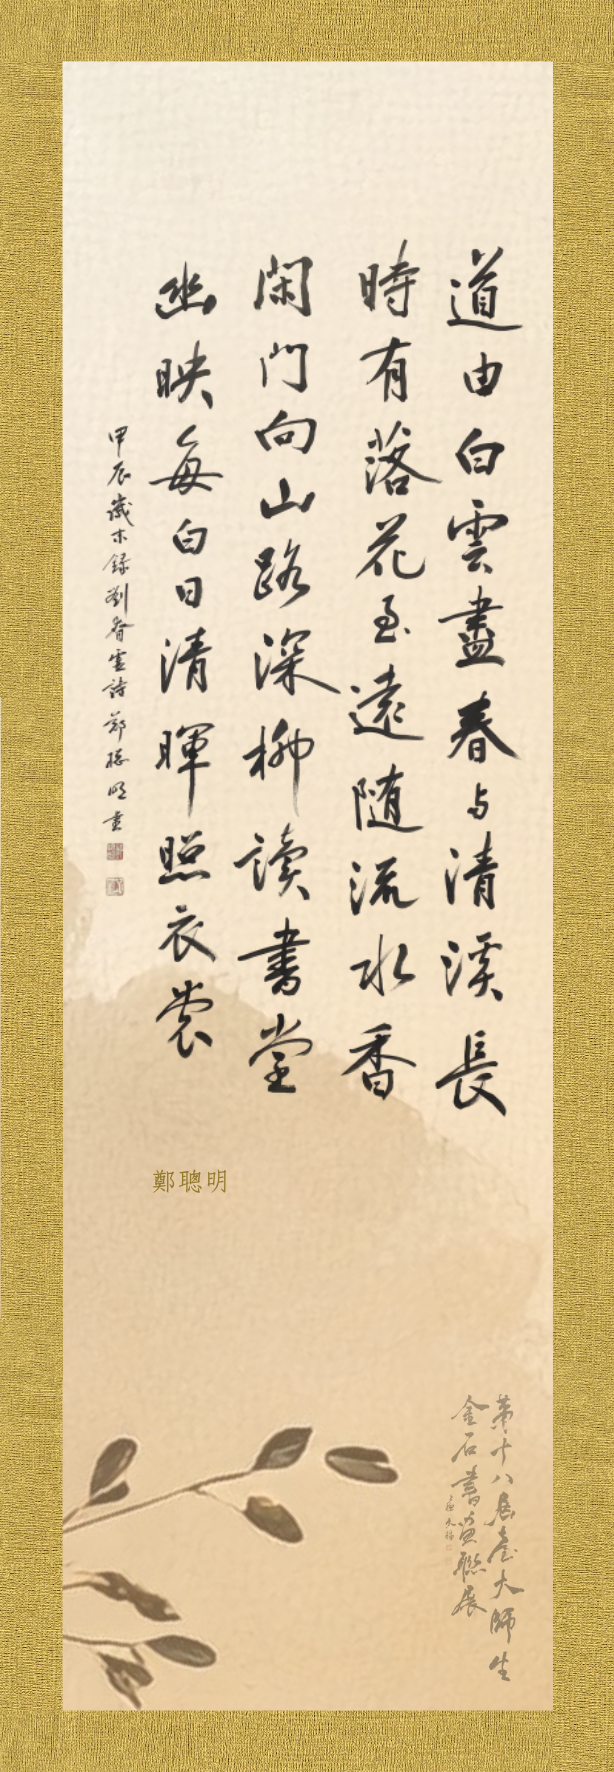 道由白雲盡春与清溪長
時有落花至遠随流水香
閑門向山路深柳讀書堂
幽映每白日清暉照衣裳
甲辰歲末錄劉眘虛詩鄭聰明書
鄭聰明
第十八屆臺大師生
金石書畫聯展